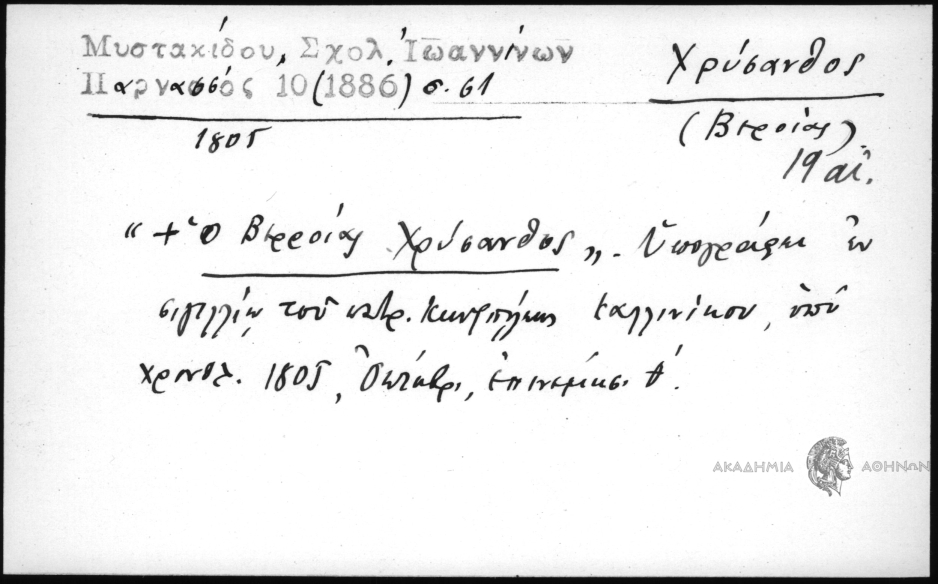 Μυστακίδου, Σχολ. Ἰωαννίνων
Παρνασσός 10 (1886) σ. 61
1805
Χρύσανθος
(Βεροίας)
19 αἰ.
“ + Ὁ Βερροίας Χρύσανθος ”. Ὑπογράφει ἐν
σιγιλλίῳ τοῦ πατρ. Κων/πόλεως Καλλινίκου, ὑπὸ
χρονολ. 1805, Ὀκτωβρ., ἐπινεμήσ. θ΄.
ΑΚΑΔΗΜΙΑ ΑΘΗΝΩΝ